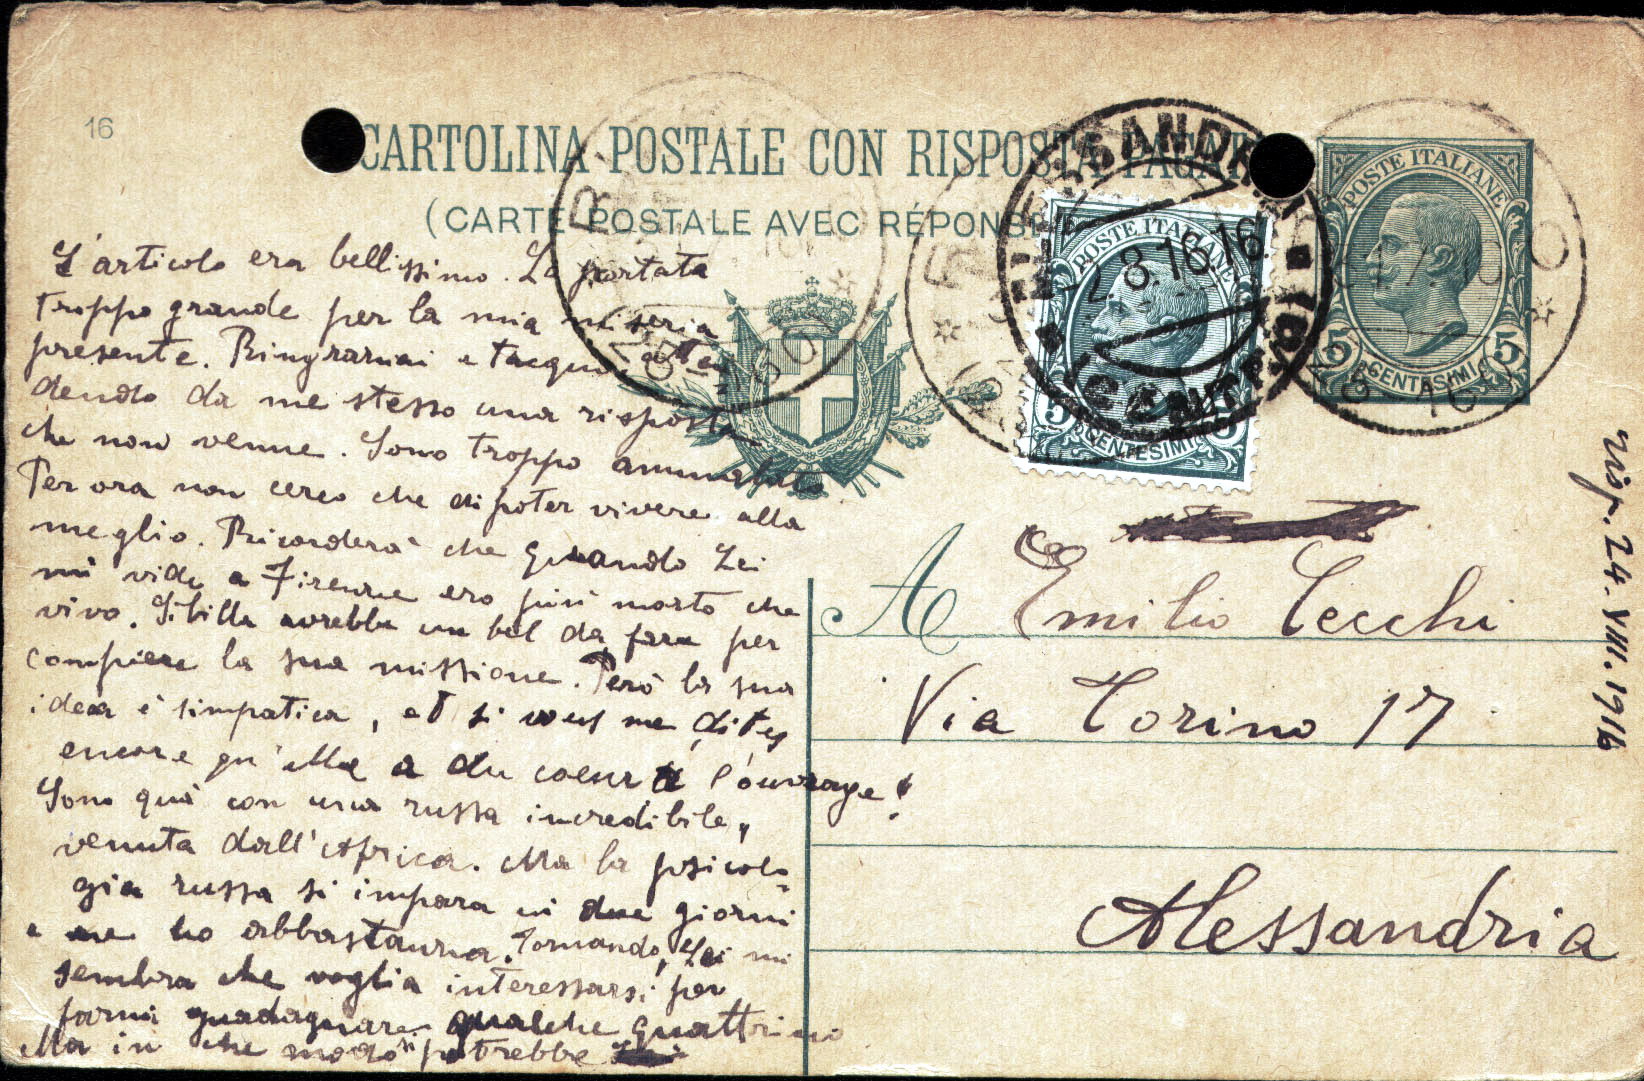 16
CARTOLINA POSTALE CON RISPOSTA PAGAT
(CARTE POSTALE AVEC RÉPONSE
POSTE ITALIANE
5 CENTESIMI 5
POSTE ITALIANE
5 CENTESIMI 5
ALESSANDRIA
2.8.16.16
CENTRO
L'articolo era bellissimo. La portata
troppo grande per la mia miseria
presente. Ringraziai e tacqui, atten
dendo da me stesso una risposta
che non venne. Sono troppo ammalato
Per ora non cerco che di poter vivere alla
meglio. Ricorderà che quando Lei
mi vide a Firenze ero più morto che
vivo. Sibilla avrebbe un bel da fare per
compiere la sua missione. Però la sua
idea è simpatica, et si vous me dites
encore qu'elle a du coeur à l'ouvrage!
Sono quà con una russa incredibile,
venuta dall'Africa. Ma la psicolo-
gia russa si impara in due giorni
e ne ho abbastanza. Tornando, Lei mi
sembra che voglia interessarsi per
farmi guadagnare qualche quattrino
Ma in che modo si potrebbe
A Emilio Cecchi
Via Torino 17
Alessandria
risp. 24. VIII. 1916